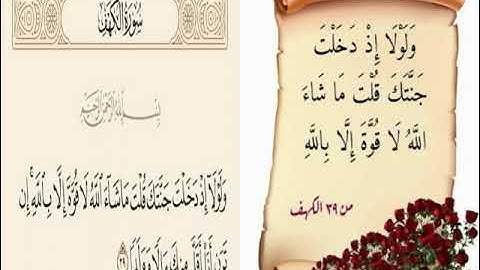 سُورَةُ الْكَهْفِ
بِسْمِ اللَّهِ الرَّحْمَٰنِ الرَّحِيمِ
وَلَوْلَا إِذْ دَخَلْتَ جَنَّتَكَ قُلْتَ مَا شَاءَ اللَّهُ لَا قُوَّةَ إِلَّا بِاللَّهِ إِن
تَرَنِ أَنَا أَقَلَّ مِنكَ مَالًا وَوَلَدًا ٣٩
وَلَوْلَا إِذْ دَخَلْتَ
جَنَّتَكَ قُلْتَ مَا شَاءَ
اللَّهُ لَا قُوَّةَ إِلَّا بِاللَّهِ
من ٣٩ الكهف